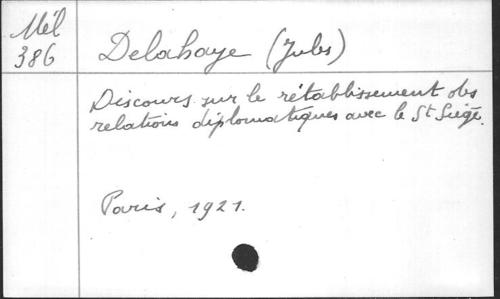 Mél
386
Delahaye (Jules)
Discours sur le rétablissement des
relations diplomatiques avec le St Siège.
Paris, 1921.